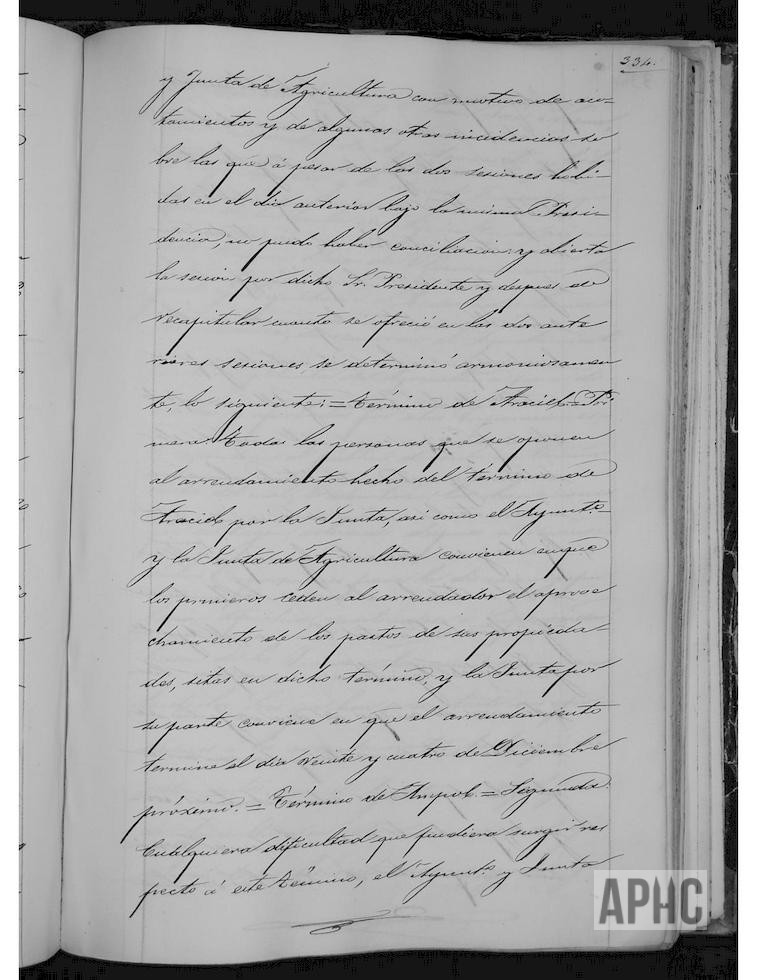 334.
y Junta de Agricultura con motivo de aco-
tamientos y de algunas otras incidencias so
bre las que á pesar de las dos sesiones habi-
das en el dia anterior bajo la misma Presi-
dencia, no pudo haber conciliacion: y abierta
la sesion por dicho Sr. Presidente y despues de
recapitular cuanto se ofreció en las dos ante
riores sesiones, se determinó armoniosamen
te, lo siguiente: = Término de Araciel = Pri
mera: Todas las personas que se oponen
al arrendamiento hecho del término de
Araciel por la Junta, asi como el Ayunt.o
y la Junta de Agricultura convienen en que
los primeros ceden al arrendador el aprove
chamiento de los pastos de sus propieda-
des, sitas en dicho término, y la Junta por
su parte conviene en que el arrendamiento
termine el dia veinte y cuatro de Diciembre
próximo. = Término de Ampol. = Segunda:
Cualquiera dificultad que pudiera surgir res
pecto á este término, el Ayunt.o y Junta
APHC